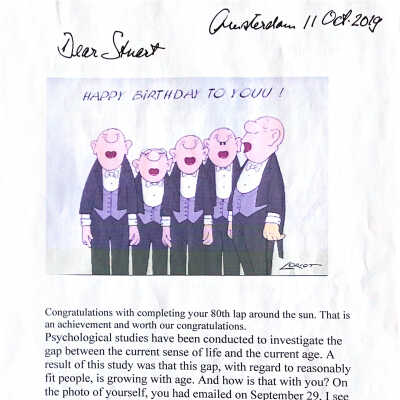 Amsterdam 11 Oct. 2019
Dear Stuart
HAPPY BIRTHDAY TO YOUU !
LORIOT
Congratulations with completing your 80th lap around the sun. That is
an achievement and worth our congratulations.
Psychological studies have been conducted to investigate the
gap between the current sense of life and the current age. A
result of this study was that this gap, with regard to reasonably
fit people, is growing with age. And how is that with you? On
the photo of yourself, you had emailed on September 29, I see